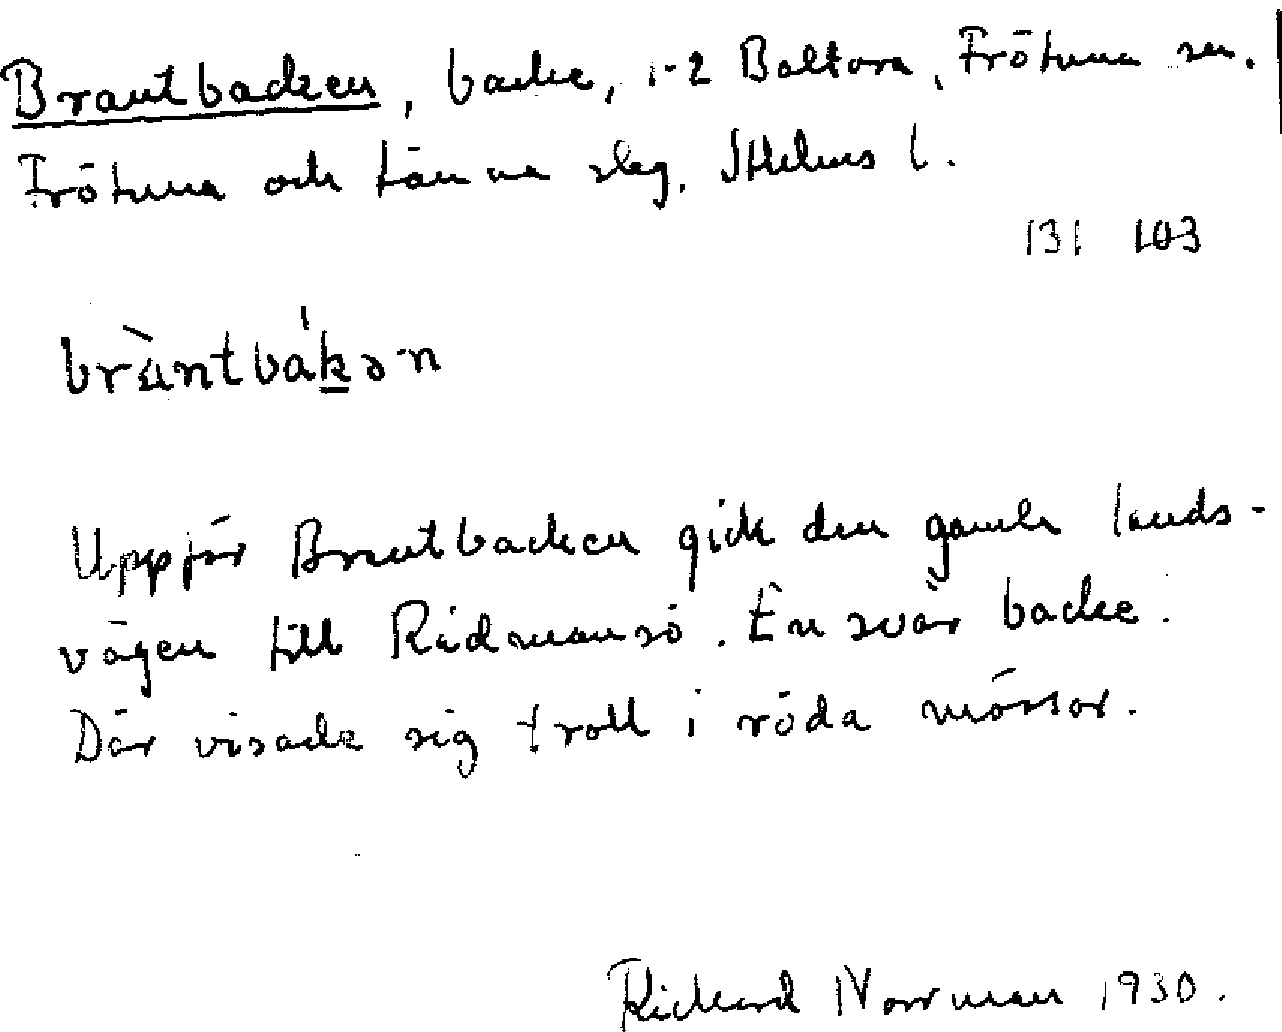 Brantbacken, backe, 1-2 Baltora, Frötuna sn.
Frötuna och Länna slag, Sthlms l.
131 103
bràntbákə·n
Uppför Brantbacken gick den gamla lands-
vägen till Rådmansö. En svår backe.
Där visade sig troll i röda mössor.
Rickard Norrman 1930.